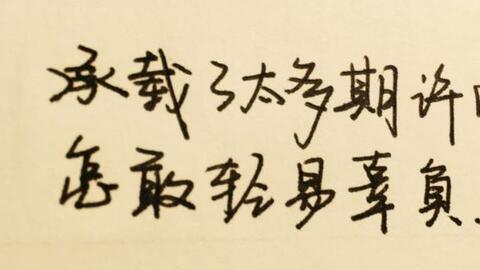 承载了太多期许
怎敢轻易辜負